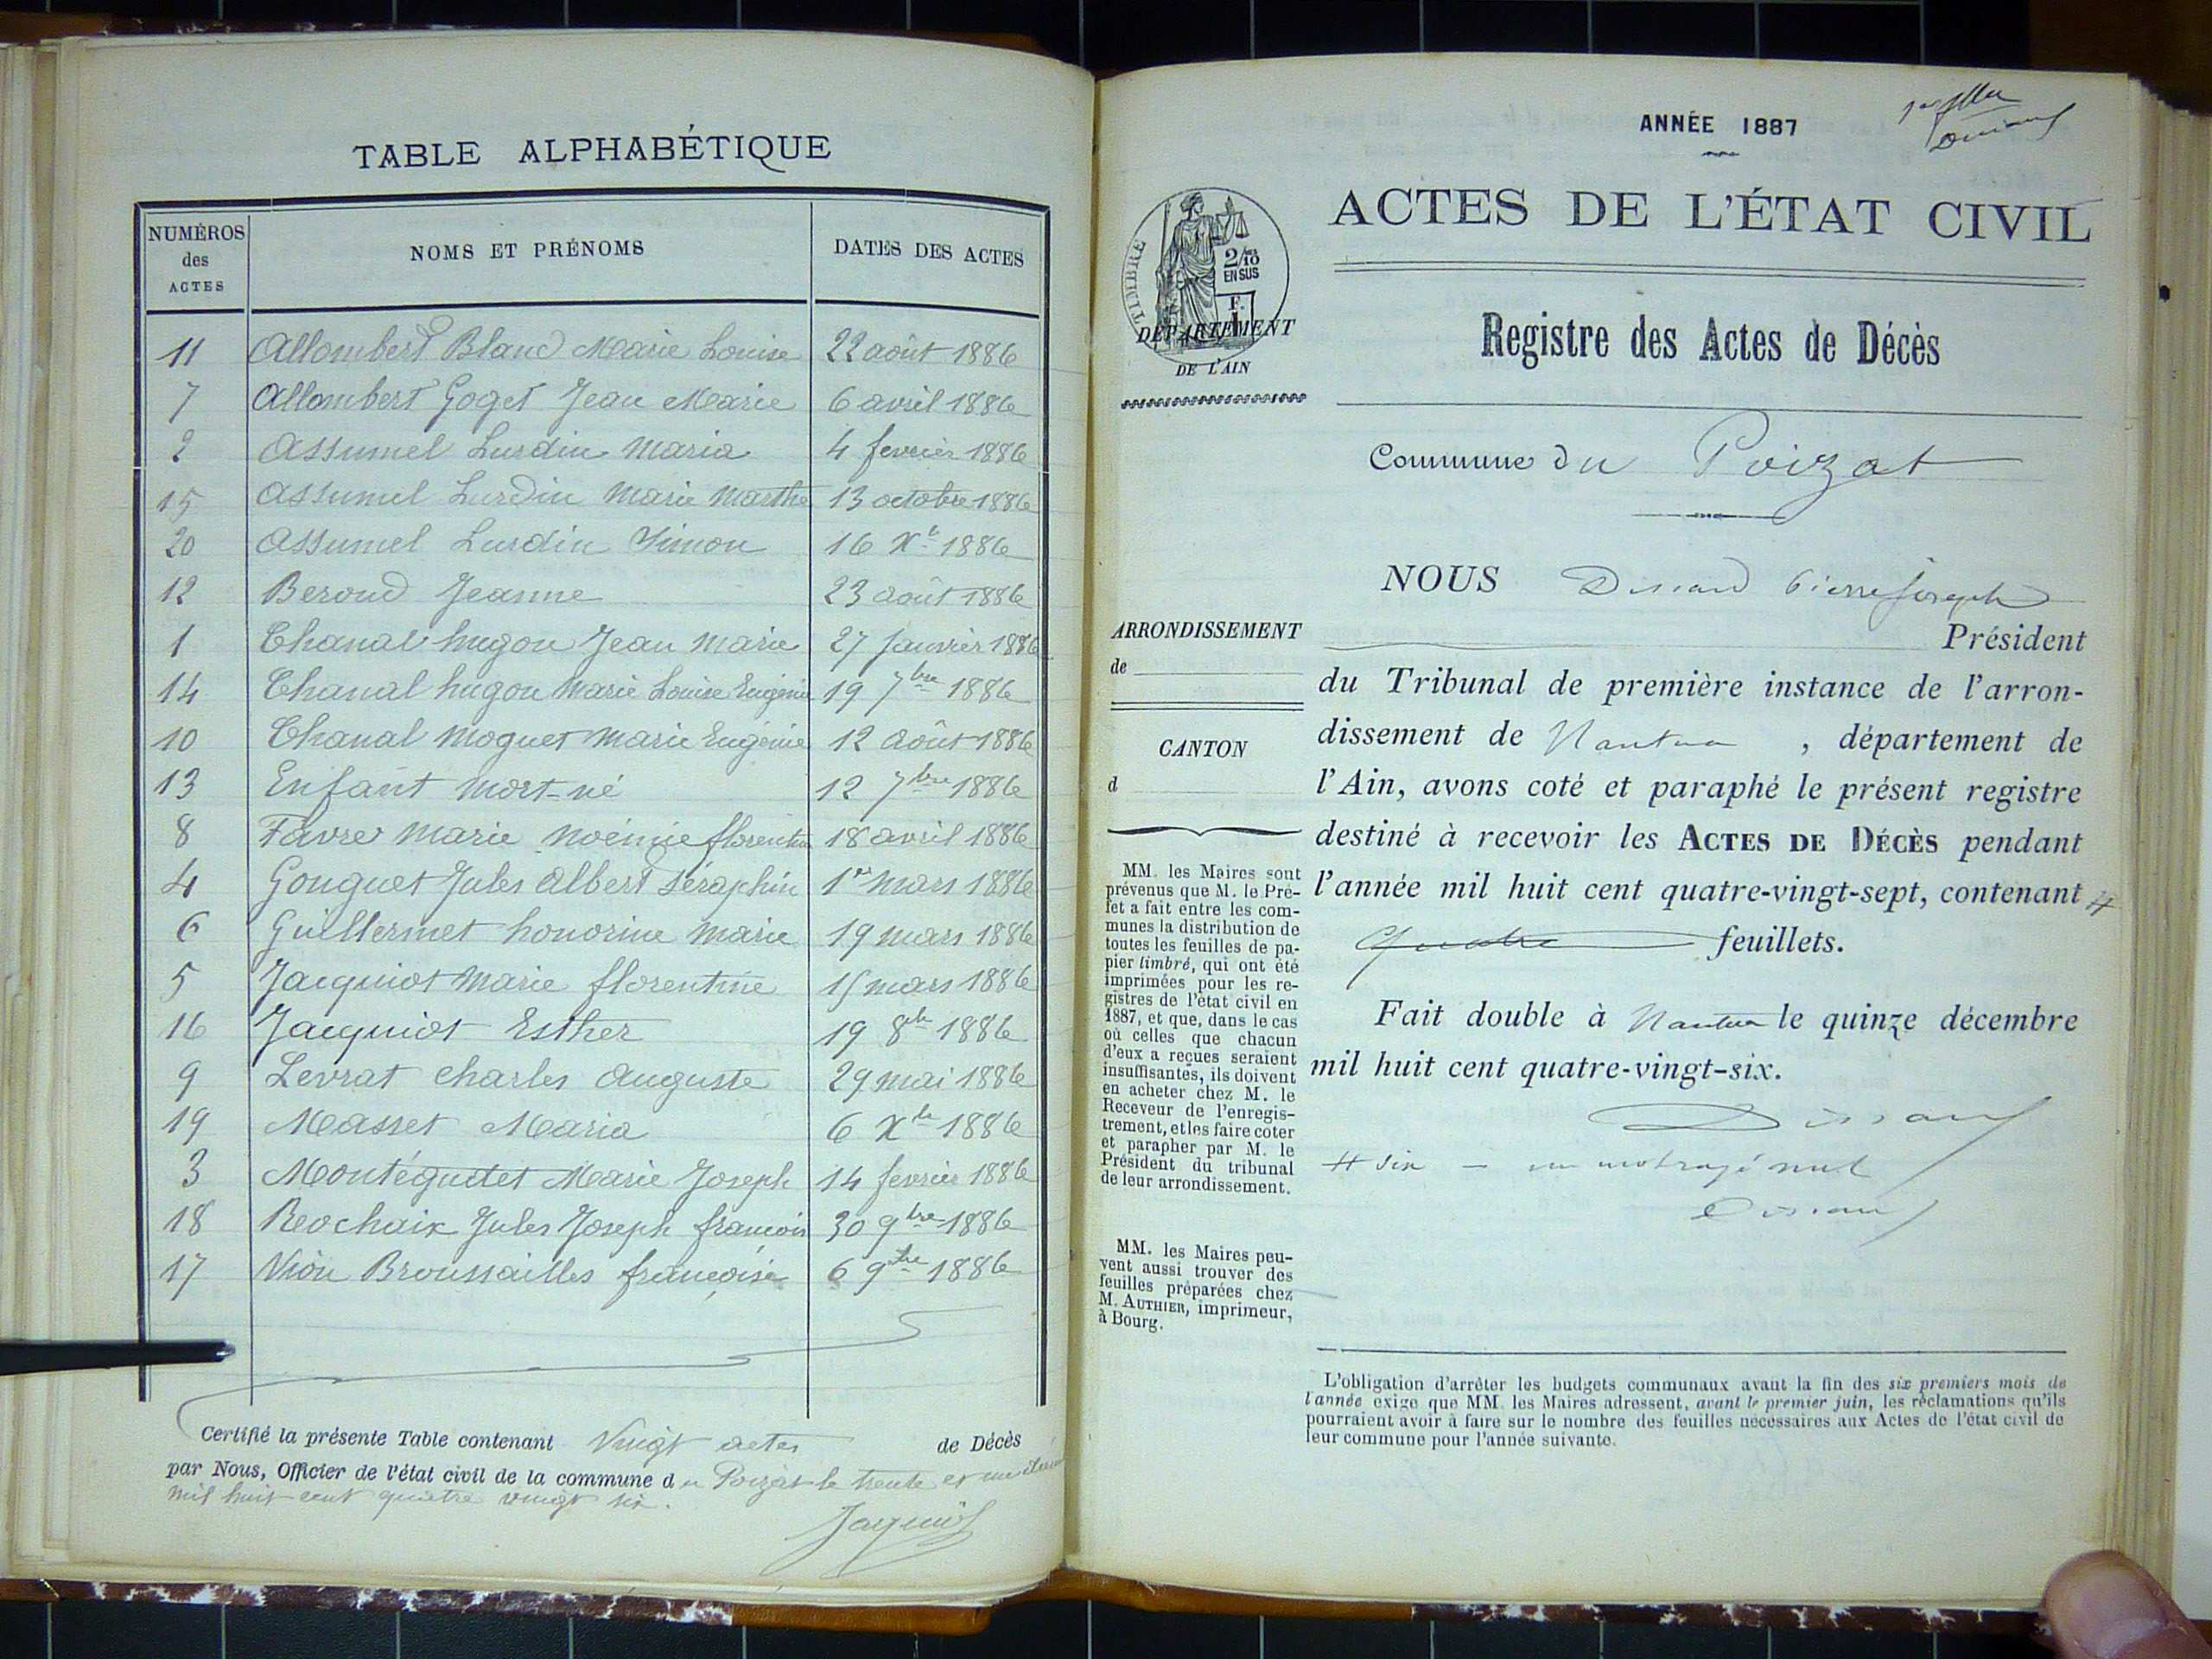 TABLE ALPHABÉTIQUE
NUMÉROS des ACTES NOMS ET PRÉNOMS DATES DES ACTES
11 Allombert Bland Marie Louise 22 août 1886
7 Allombert Goget Jean Marie 6 avril 1886
2 Assumel Lurdin Maria 4 fevrier 1886
15 Assumel Lurdin Marie Marthe 13 octobre 1886
20 Assumel Lurdin Simon 16 Xbre 1886
12 Beroud Jeanne 23 août 1886
1 Chanal hugon Jean Marie 27 Janvier 1886
14 Chanal hugon Marie Louise Eugénie 19 7bre 1886
10 Chanal Moguet Marie Eugénie 12 août 1886
13 Enfant mort-né 12 7bre 1886
8 Favre Marie Noémie florentine 18 avril 1886
4 Gonguet Jules Albert Séraphin 1er Mars 1886
6 Guillermet honorine Marie 19 mars 1886
5 Jacquiot Marie florentine 15 mars 1886
16 Jacquiot Esther 19 8bre 1886
9 Levrat Charles Auguste 29 mai 1886
19 Masset Maria 6 Xbre 1886
3 Montégutet Marie Joseph 14 fevrier 1886
18 Reochaix Jules Joseph francois 30 9bre 1886
17 Vion Broussailles françoise 6 9bre 1886
Certifié la présente Table contenant Vingt actes de Décès
par Nous, Officier de l'état civil de la commune du Poizat le trente et un
mil huit cent quatre vingt six.
Jacquiot
ANNÉE 1887
ACTES DE L'ÉTAT CIVIL
TIMBRE
2/10
EN SUS
F.
DÉPARTEMENT
DE L'AIN
Registre des Actes de Décès
Commune du Poizat
ARRONDISSEMENT
de
CANTON
d
MM. les Maires sont
prévenus que M. le Pré-
fet a fait entre les com-
munes la distribution de
toutes les feuilles de pa-
pier timbré, qui ont été
imprimées pour les re-
gistres de l'état civil en
1887, et que, dans le cas
où celles que chacun
d'eux a reçues seraient
insuffisantes, ils doivent
en acheter chez M. le
Receveur de l'enregis-
trement, et les faire coter
et parapher par M. le
Président du tribunal
de leur arrondissement.
MM. les Maires peu-
vent aussi trouver des
feuilles préparées chez
M. AUTHIER, imprimeur,
à Bourg.
NOUS Dissard Pierre Joseph
Président
du Tribunal de première instance de l'arron-
dissement de Nantua, département de
l'Ain, avons coté et paraphé le présent registre
destiné à recevoir les ACTES DE DÉCÈS pendant
l'année mil huit cent quatre-vingt-sept, contenant #
quatre feuillets.
Fait double à Nantua le quinze décembre
mil huit cent quatre-vingt-six.
Dissard
# six - un mot rayé nul
Dissard
L'obligation d'arrêter les budgets communaux avant la fin des six premiers mois de
l'année exige que MM. les Maires adressent, avant le premier juin, les réclamations qu'ils
pourraient avoir à faire sur le nombre des feuilles nécessaires aux Actes de l'état civil de
leur commune pour l'année suivante.